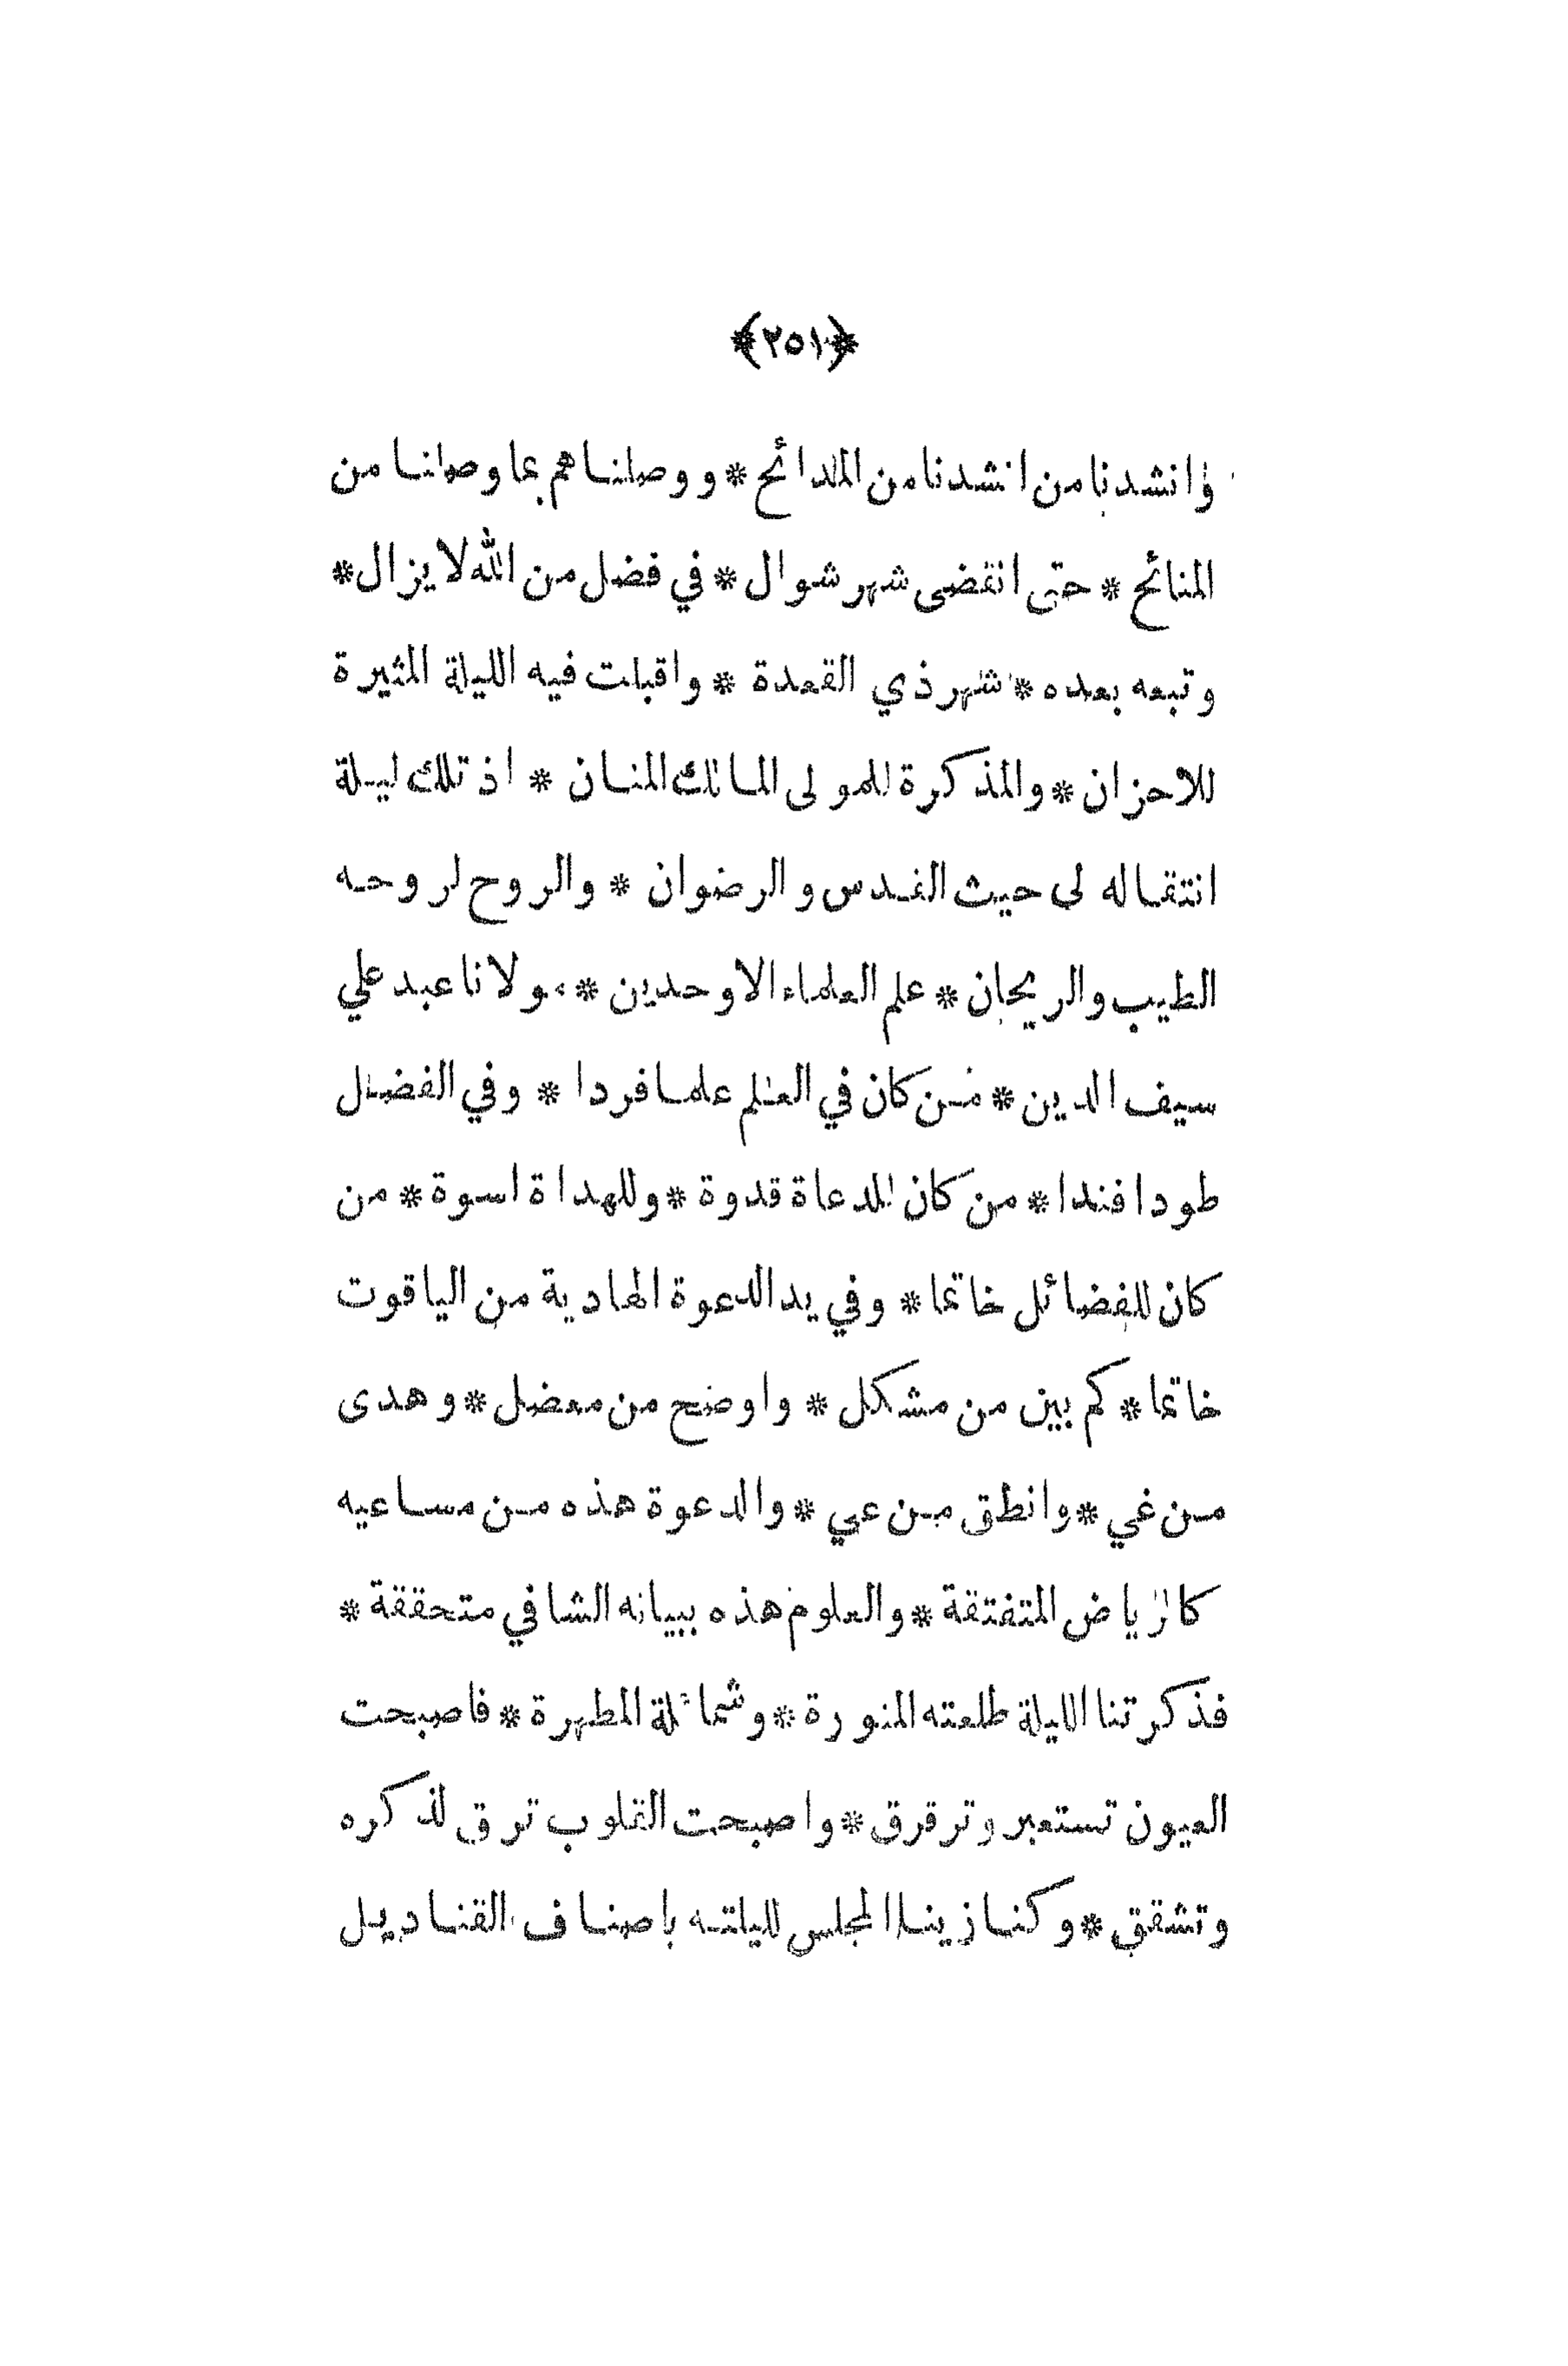 ﴿٢٥١﴾
وانشدنا من انشدنا من المدائح * ووصلناهم بما وصلنا من
المنائح * حتى انقضى شهر شوال * في فضل من الله لا يزال *
وتبعه بعده * شهر ذي القعدة * واقبلت فيه الليلة المثيرة
للاحزان * والمذكرة للمولى المالك المنان * اذ تلك ليلة
انتقاله لى حيث القدس والرضوان * والروح لروحه
الطيب والريحان * علم العلماء الاوحدين * مولانا عبد علي
سيف الدين * من كان في العلم علما فردا * وفي الفضل
طودا فندا * من كان للدعاة قدوة * وللهداة اسوة * من
كان للفضائل خاتما * وفي يد الدعوة الهادية من الياقوت
خاتما * كم بين من مشكل * واوضح من معضل * وهدى
من غي * وانطق من عي * والدعوة هذه من مساعيه
كالرياض المتفتقة * والعلوم هذه ببيانه الشافي متحققة *
فذكرتنا الليلة طلعته المنورة * وشمائلة المطهرة * فاصبحت
العيون تستعبر وترقرق * واصبحت القلوب ترق لذكره
وتشقق * وكنا زينا المجلس لليلته باصناف القناديل